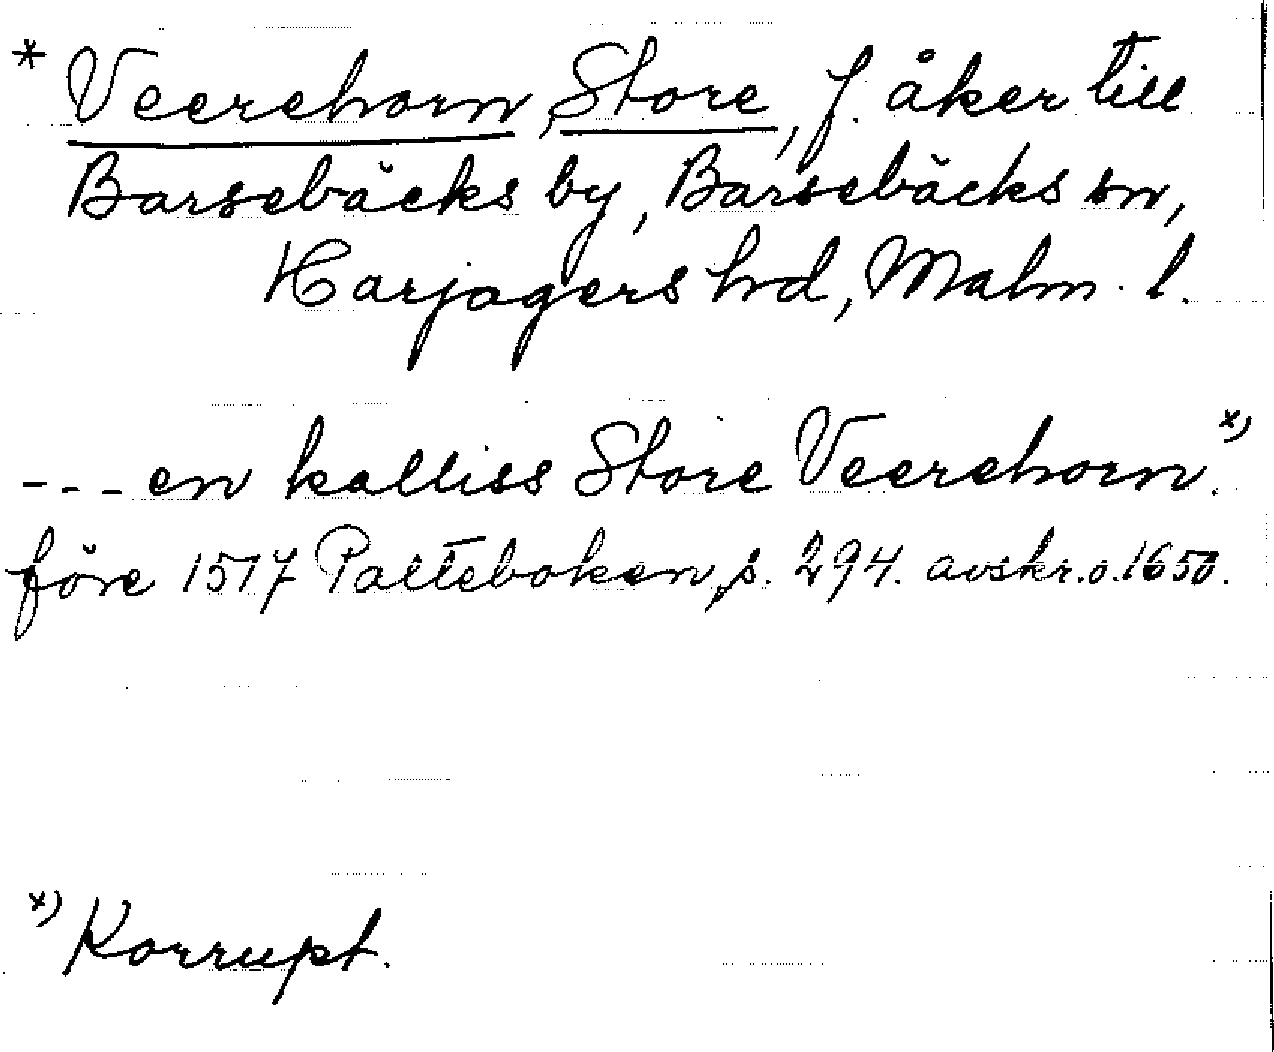 * Veerehorn, Store, f. åker till
Barsebäcks by, Barsebäcks sn,
Harjagers hd, Malm. l.
--- en kalliss Store Veerehorn. x)
före 1517 Palteboken, s. 294. avskr. o. 1650.
x) Korrupt.